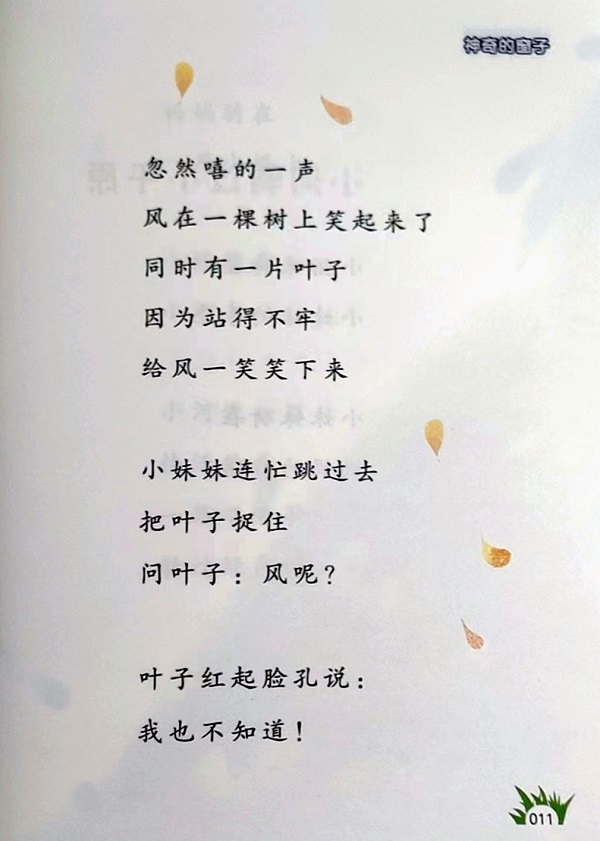 神奇的窗子
忽然嘻的一声
风在一棵树上笑起来了
同时有一片叶子
因为站得不牢
给风一笑笑下来
小妹妹连忙跳过去
把叶子捉住
问叶子：风呢？
叶子红起脸孔说：
我也不知道！
011